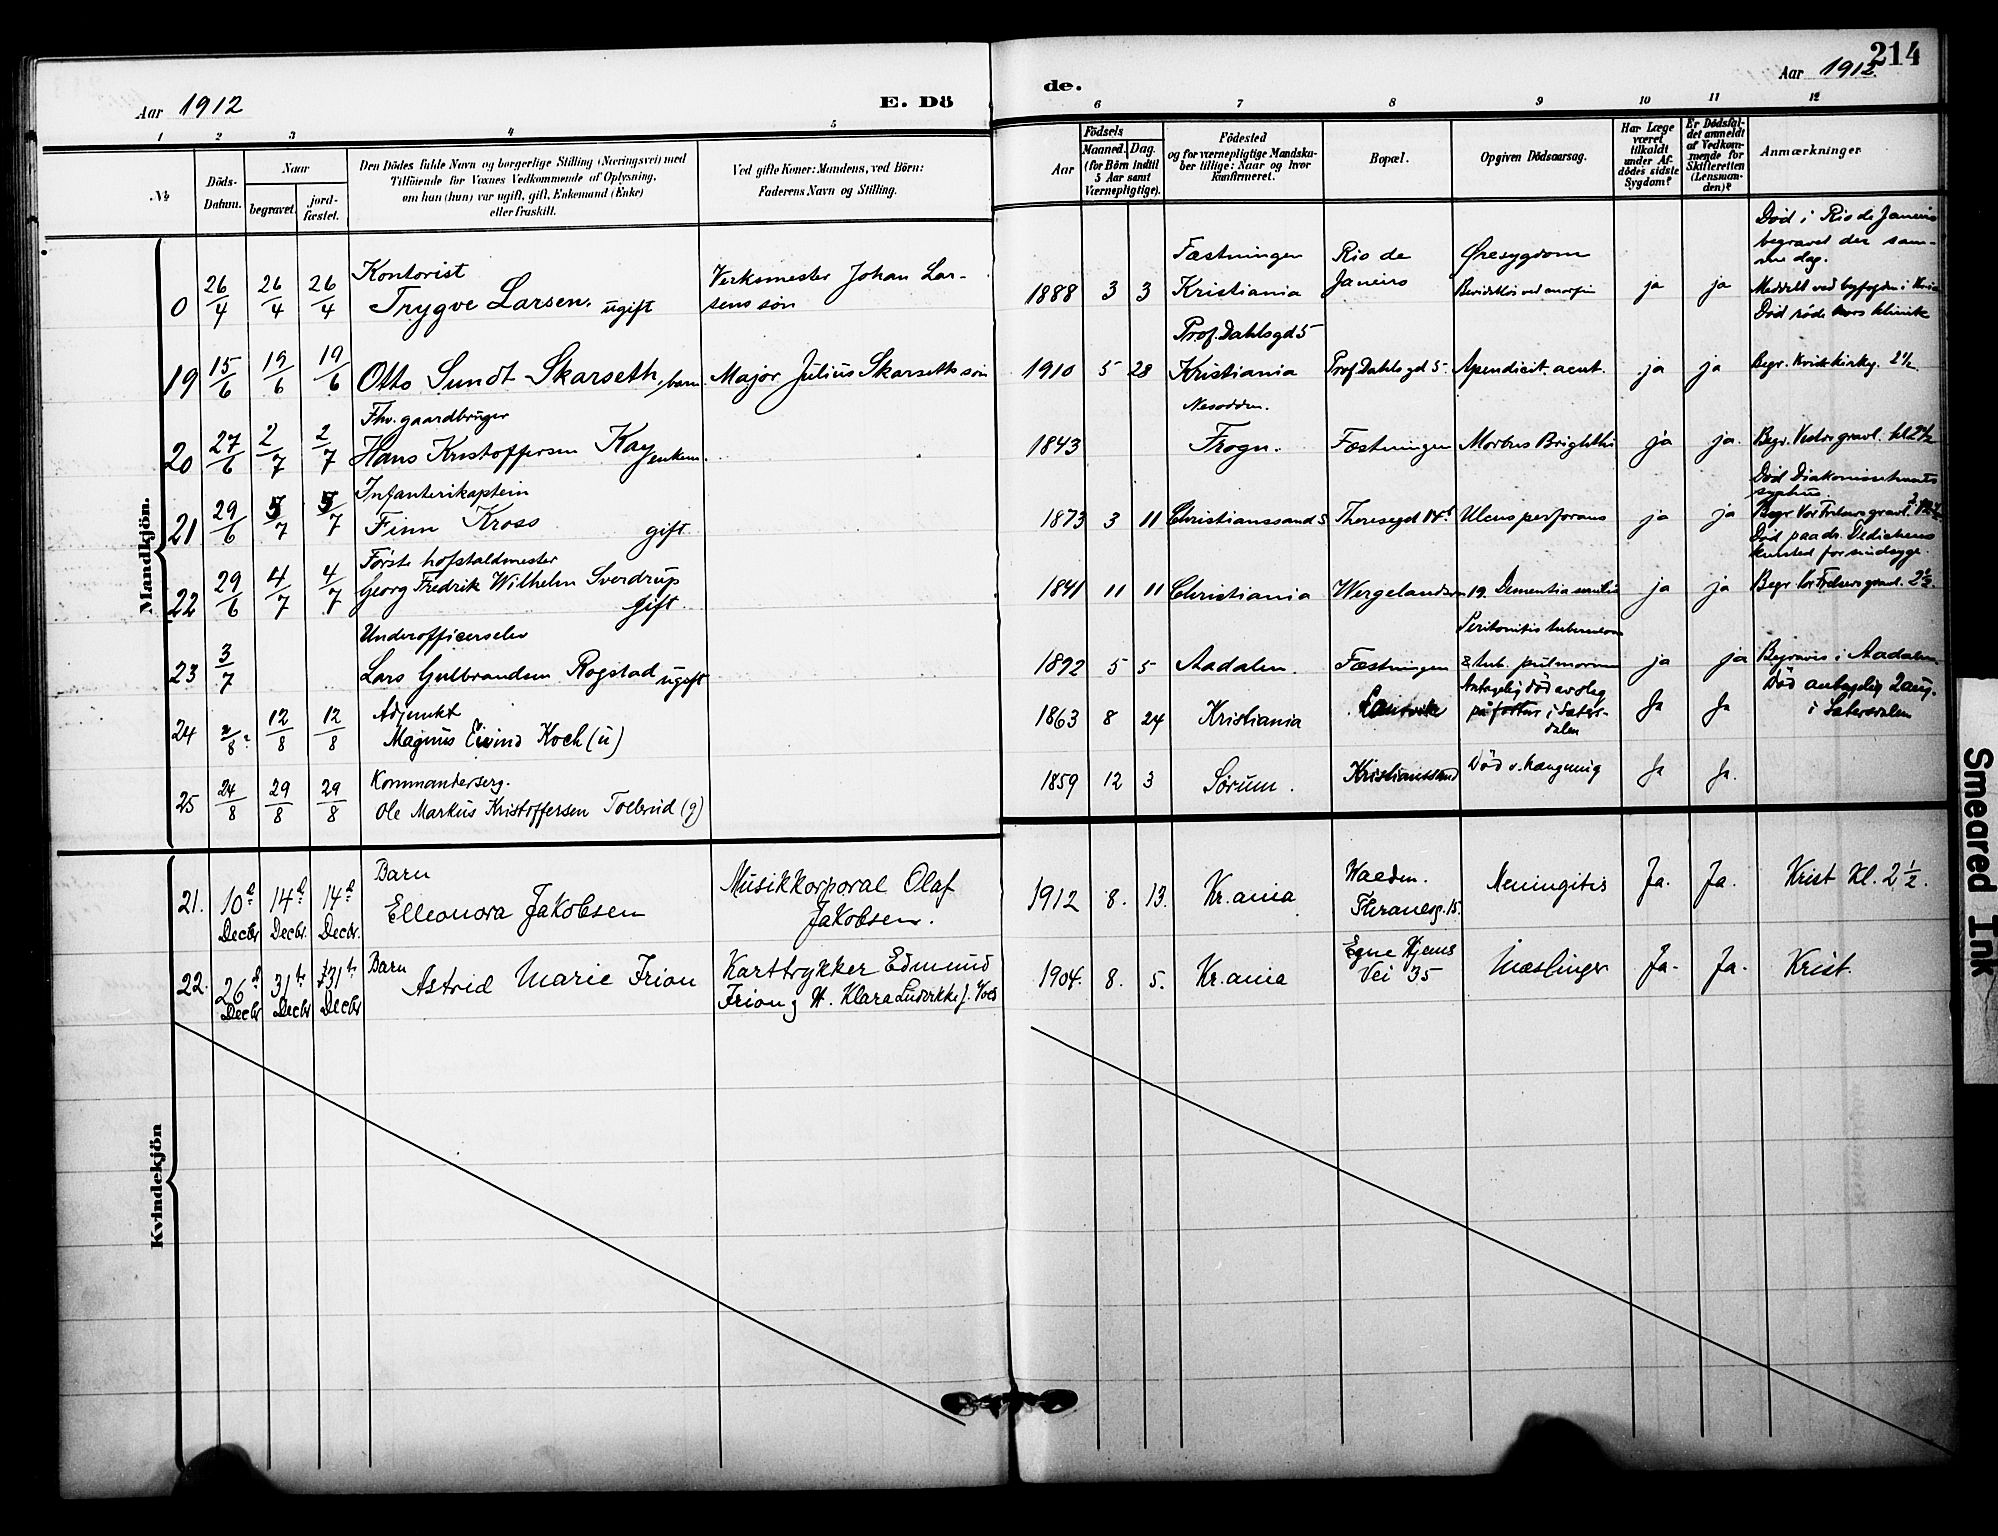 Aar 1912
E. Dö
de.
Aar 1912
214
1 2 3 4 5 6 7 8 9 10 11 12
No
Döds-
Datum.
Naar
begravet.
jord-
fæstet.
Den Dödes fulde Navn og borgerlige Stilling (Næringsvei) med
Tilföiende for Voxnes Vedkommende af Oplysning,
om han (hun) var ugift, gift, Enkemand (Enke)
eller fraskilt.
Ved gifte Koner: Mandens, ved Börn:
Faderens Navn og Stilling.
Födsels
Aar
Maaned. Dag.
(for Börn indtil
5 Aar samt
Værnepligtige).
Födested
og for værnepligtige Mandska-
ber tillige: Naar og hvor
konfirmeret.
Bopæl.
Opgiven Dödsaarsag.
Har Læge
været
tilkaldt
under Af-
dödes sidste
Sygdom?
Er Dödsfal-
det anmeldt
af Vedkom-
mende for
Skifteretten
(Lensman-
den)?
Anmærkninger
Mandkjön.
0 26/4 26/4 26/4
Kontorist
Trygve Larsen. ugift
Verksmester Johan Lar-
sens søn
1888 3 3
Fæstningen
Kristiania
Rio de
Janeiro
Øresygdom
ja ja
Død i Rio de Janeiro
begravet der sam-
me dag.
19 15/6 19/6 19/6
Otto Sundt Skarseth, barn
Major Julius Skarseths søn
1910 5 28
Prof. Dahlsgd 5
Kristiania
Prof Dahlsgd 5
Apendicit. acut.
ja ja
Død røde kors klinik
20 27/6 2/7 2/7
Fhv. gaardbruger
Hans Kristoffersen Kay enkem.
1843
Nesodden.
Frogn.
Fæstningen
Morbus Brightii
ja ja.
21 29/6 5/7 5/7
Infanterikaptein
Finn Kross gift
1873 3 11
Christianssand S
Theresegd 14
Ulcus perforans
ja ja
22 29/6 4/7 4/7
Første hofstaldmester
Georg Fredrik Wilhelm Sverdrup
gift.
1841 11 11
Christiania
19. Dementia senilis
ja ja
23 3/7
Underofficerselev
Lars Gulbrandsen Rogstad ugift
1892 5 5
Aadalen
Fæstningen
Peritonitis tuberculosa
& tub. pulmonum
ja ja
Begraves i Aadalen
24 2/8? 12/8 12/8
Adjunkt
Magnus Eivind Koch (u)
1863 8 24
Kristiania
Antagelig død av slag
på fottur i Sæter-
dalen
Ja Ja
Død antagelig 2 aug.
i Sætersdalen
25 24/8 29/8 29/8
Kommandersерg.
Ole Markus Kristoffersen Tollerud (g)
1859 12 3
Sørum.
Kristianssand
Død v. hængning
Ja Ja.
Kvindekjön
21. 10d Decbr 14d Decbr. 14d Decbr.
Barn
Elleonora Jakobsen
Musikkorporal Olaf
Jakobsen.
1912 8. 13.
Kr.ania
Thranesg. 15.
Meningitis
Ja. Ja.
Krist Kl. 2 1/2.
22. 26d Decbr 31te Decbr 31te Decbr
Barn
Astrid Marie Frion
Karttrykker Edmund
Frion og H. Klara
1904. 8. 5.
Kr.ania
Egne Hjems
Vei 35
Mæslinger
Ja. Ja.
Krist.
Smeared Ink